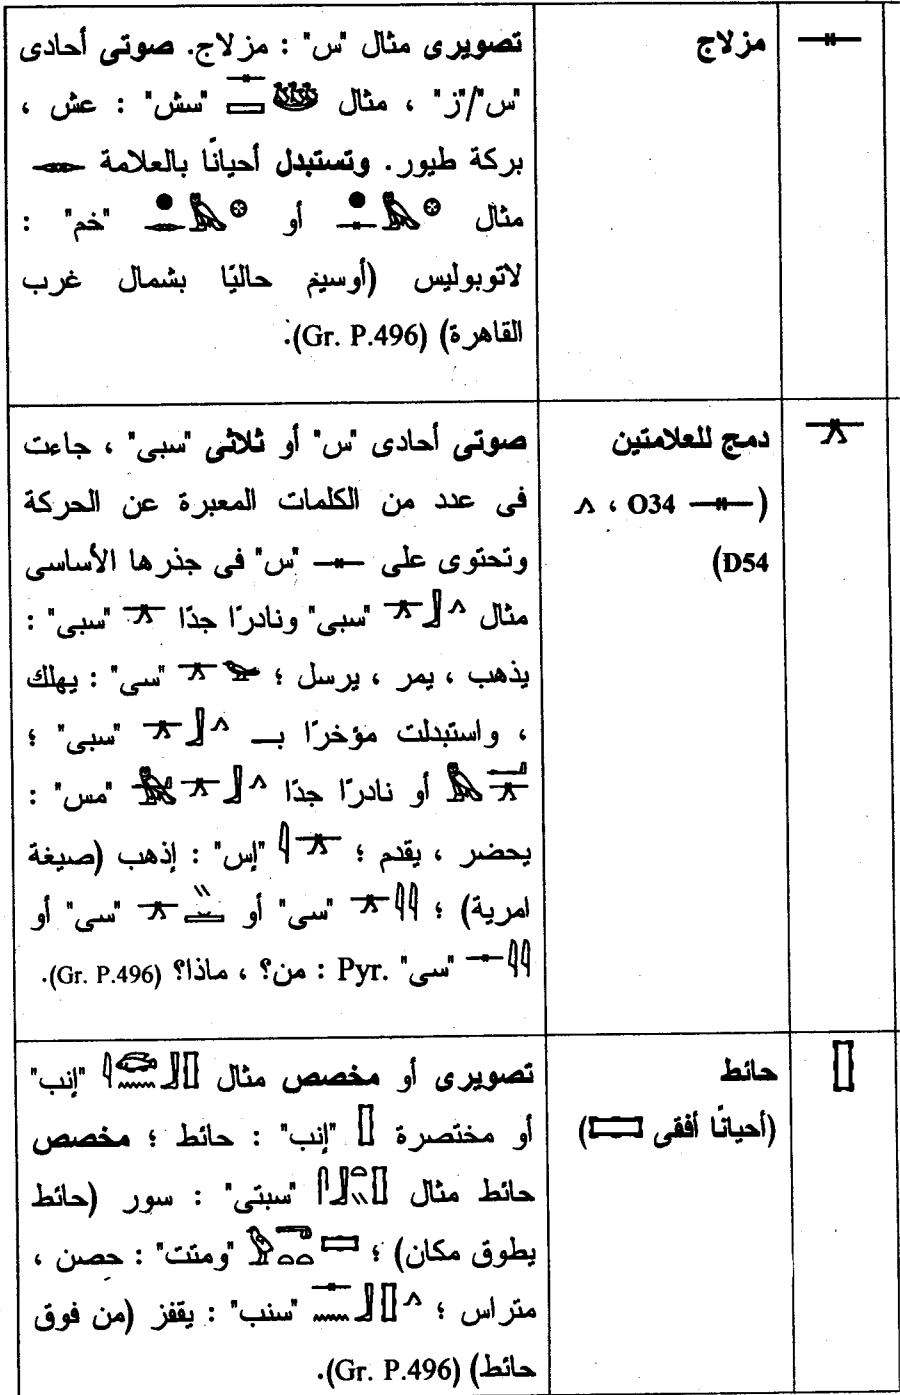 𓊃
مزلاج
تصويرى مثال "س" : مزلاج. صوتى أحادى
"س"/"ز" ، مثال "سش" : عش ،
بركة طيور. وتستبدل أحيانًا بالعلامة
مثال أو "خم" :
لاتوبوليس (أوسيم حاليًا بشمال غرب
القاهرة) (Gr. P.496).
𓊄
دمج للعلامتين
(𓊃 O34 ، 𓂻
D54)
صوتى أحادى "س" أو ثلاثى "سبى" ، جاءت
فى عدد من الكلمات المعبرة عن الحركة
وتحتوى على 𓊃 "س" فى جذرها الأساسى
مثال 𓊄𓃀𓂻 "سبى" ونادرًا جدًا 𓊄 "سبى" :
يذهب ، يمر ، يرسل ؛ 𓊄𓅪 "سى" : يهلك
، واستبدلت مؤخرًا بـ 𓊄𓃀𓂻 "سبى" ؛
أو نادرًا جدًا "مس" :
يحضر ، يقدم ؛ 𓇋𓊄 "إس" : إذهب (صيغة
امرية) ؛ 𓊄𓇌 "سى" أو "سى" أو
𓊃𓇌 "سى" Pyr. : من؟ ، ماذا؟ (Gr. P.496).
𓊅
حائط
(أحيانًا أفقى)
تصويرى أو مخصص مثال 𓇋𓆛𓈖𓃀𓊅 "إنب"
أو مختصرة 𓊅 "إنب" : حائط ؛ مخصص
حائط مثال "سبتى" : سور (حائط
يطوق مكان) ؛ "ومتت" : حصن ،
متراس ؛ 𓊃𓈖𓃀𓊅𓂻 "سنب" : يقفز (من فوق
حائط) (Gr. P.496).